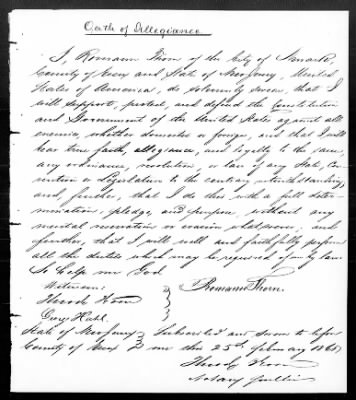 Oath of Allegiance
I, Romann Thorn of the City of Newark,
County of Essex and State of New Jersey, United
States of America, do solemnly swear, that I
will support, protect, and defend the Constitution
and Government of the United States against all
enemies, whether domestic or foreign, and that I will
bear true faith, allegiance, and loyalty to the same,
any ordinance, resolution, or law of any State, Con
vention or Legislature to the contrary notwithstanding,
and further, that I do this with a full deter-
mination, pledge, and purpose, without any
mental reservation or evasion whatsoever; and
further, that I will well and faithfully perform
all the duties which may be required of me by law.
So help me God
Witness:
Romann Thorn.
Georg Hahl.
State of New Jersey Subscribed and sworn to before
County of Essex me this 25th February 186
Notary Public